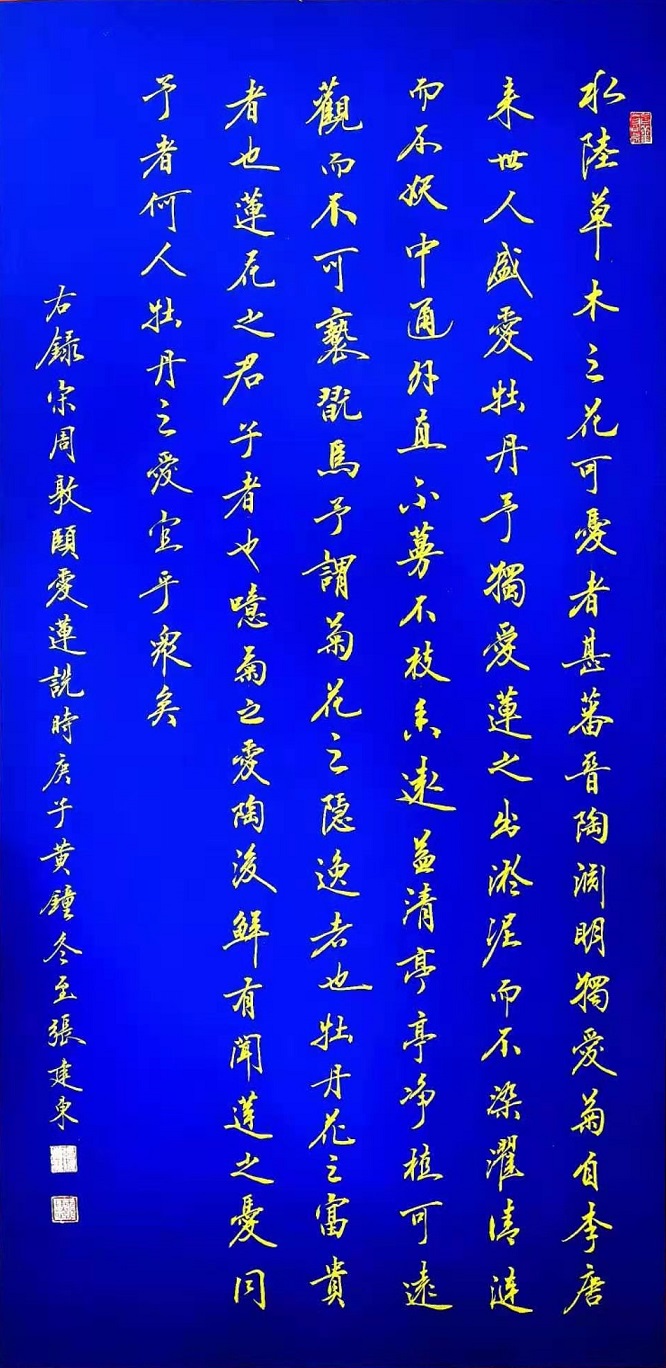 水陸草木之花可愛者甚蕃晉陶淵明獨愛菊自李唐
来世人盛愛牡丹予獨愛蓮之出淤泥而不染濯清漣
而不妖中通外直不蔓不枝香遠益清亭亭净植可遠
觀而不可褻翫焉予謂菊花之隱逸者也牡丹花之富貴
者也蓮花之君子者也噫菊之愛陶後鮮有聞蓮之愛同
予者何人牡丹之愛宜乎衆矣
右録宋周敦頤愛蓮説時庚子黄鐘冬至張建東